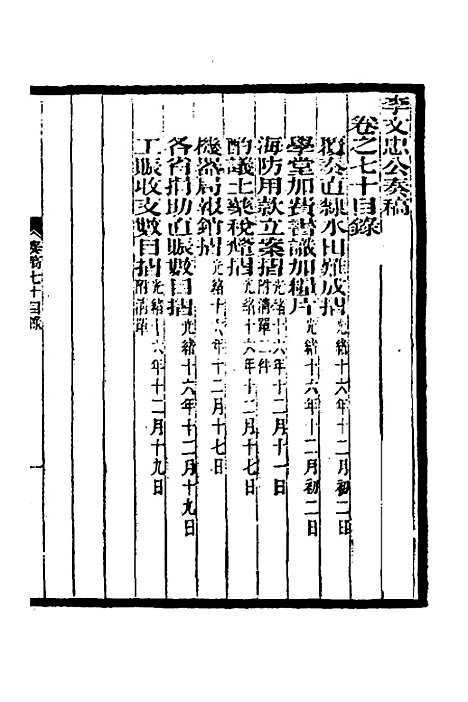 李文忠公奏稿
卷之七十目錄
覆奏直隸水田難成摺光緒十六年十二月初二日
學堂加費書識加糧片光緒十六年十二月初二日
海防用款立案摺光緒十六年十二月十一日附清單二件
酌議土藥稅釐摺光緒十六年十二月十七日
機器局報銷摺光緒十六年十二月十七日
各省捐助直賑數目摺光緒十六年十二月十九日
工賑收支數目摺光緒十六年十二月十九日附清單
奏稿七十目錄
一